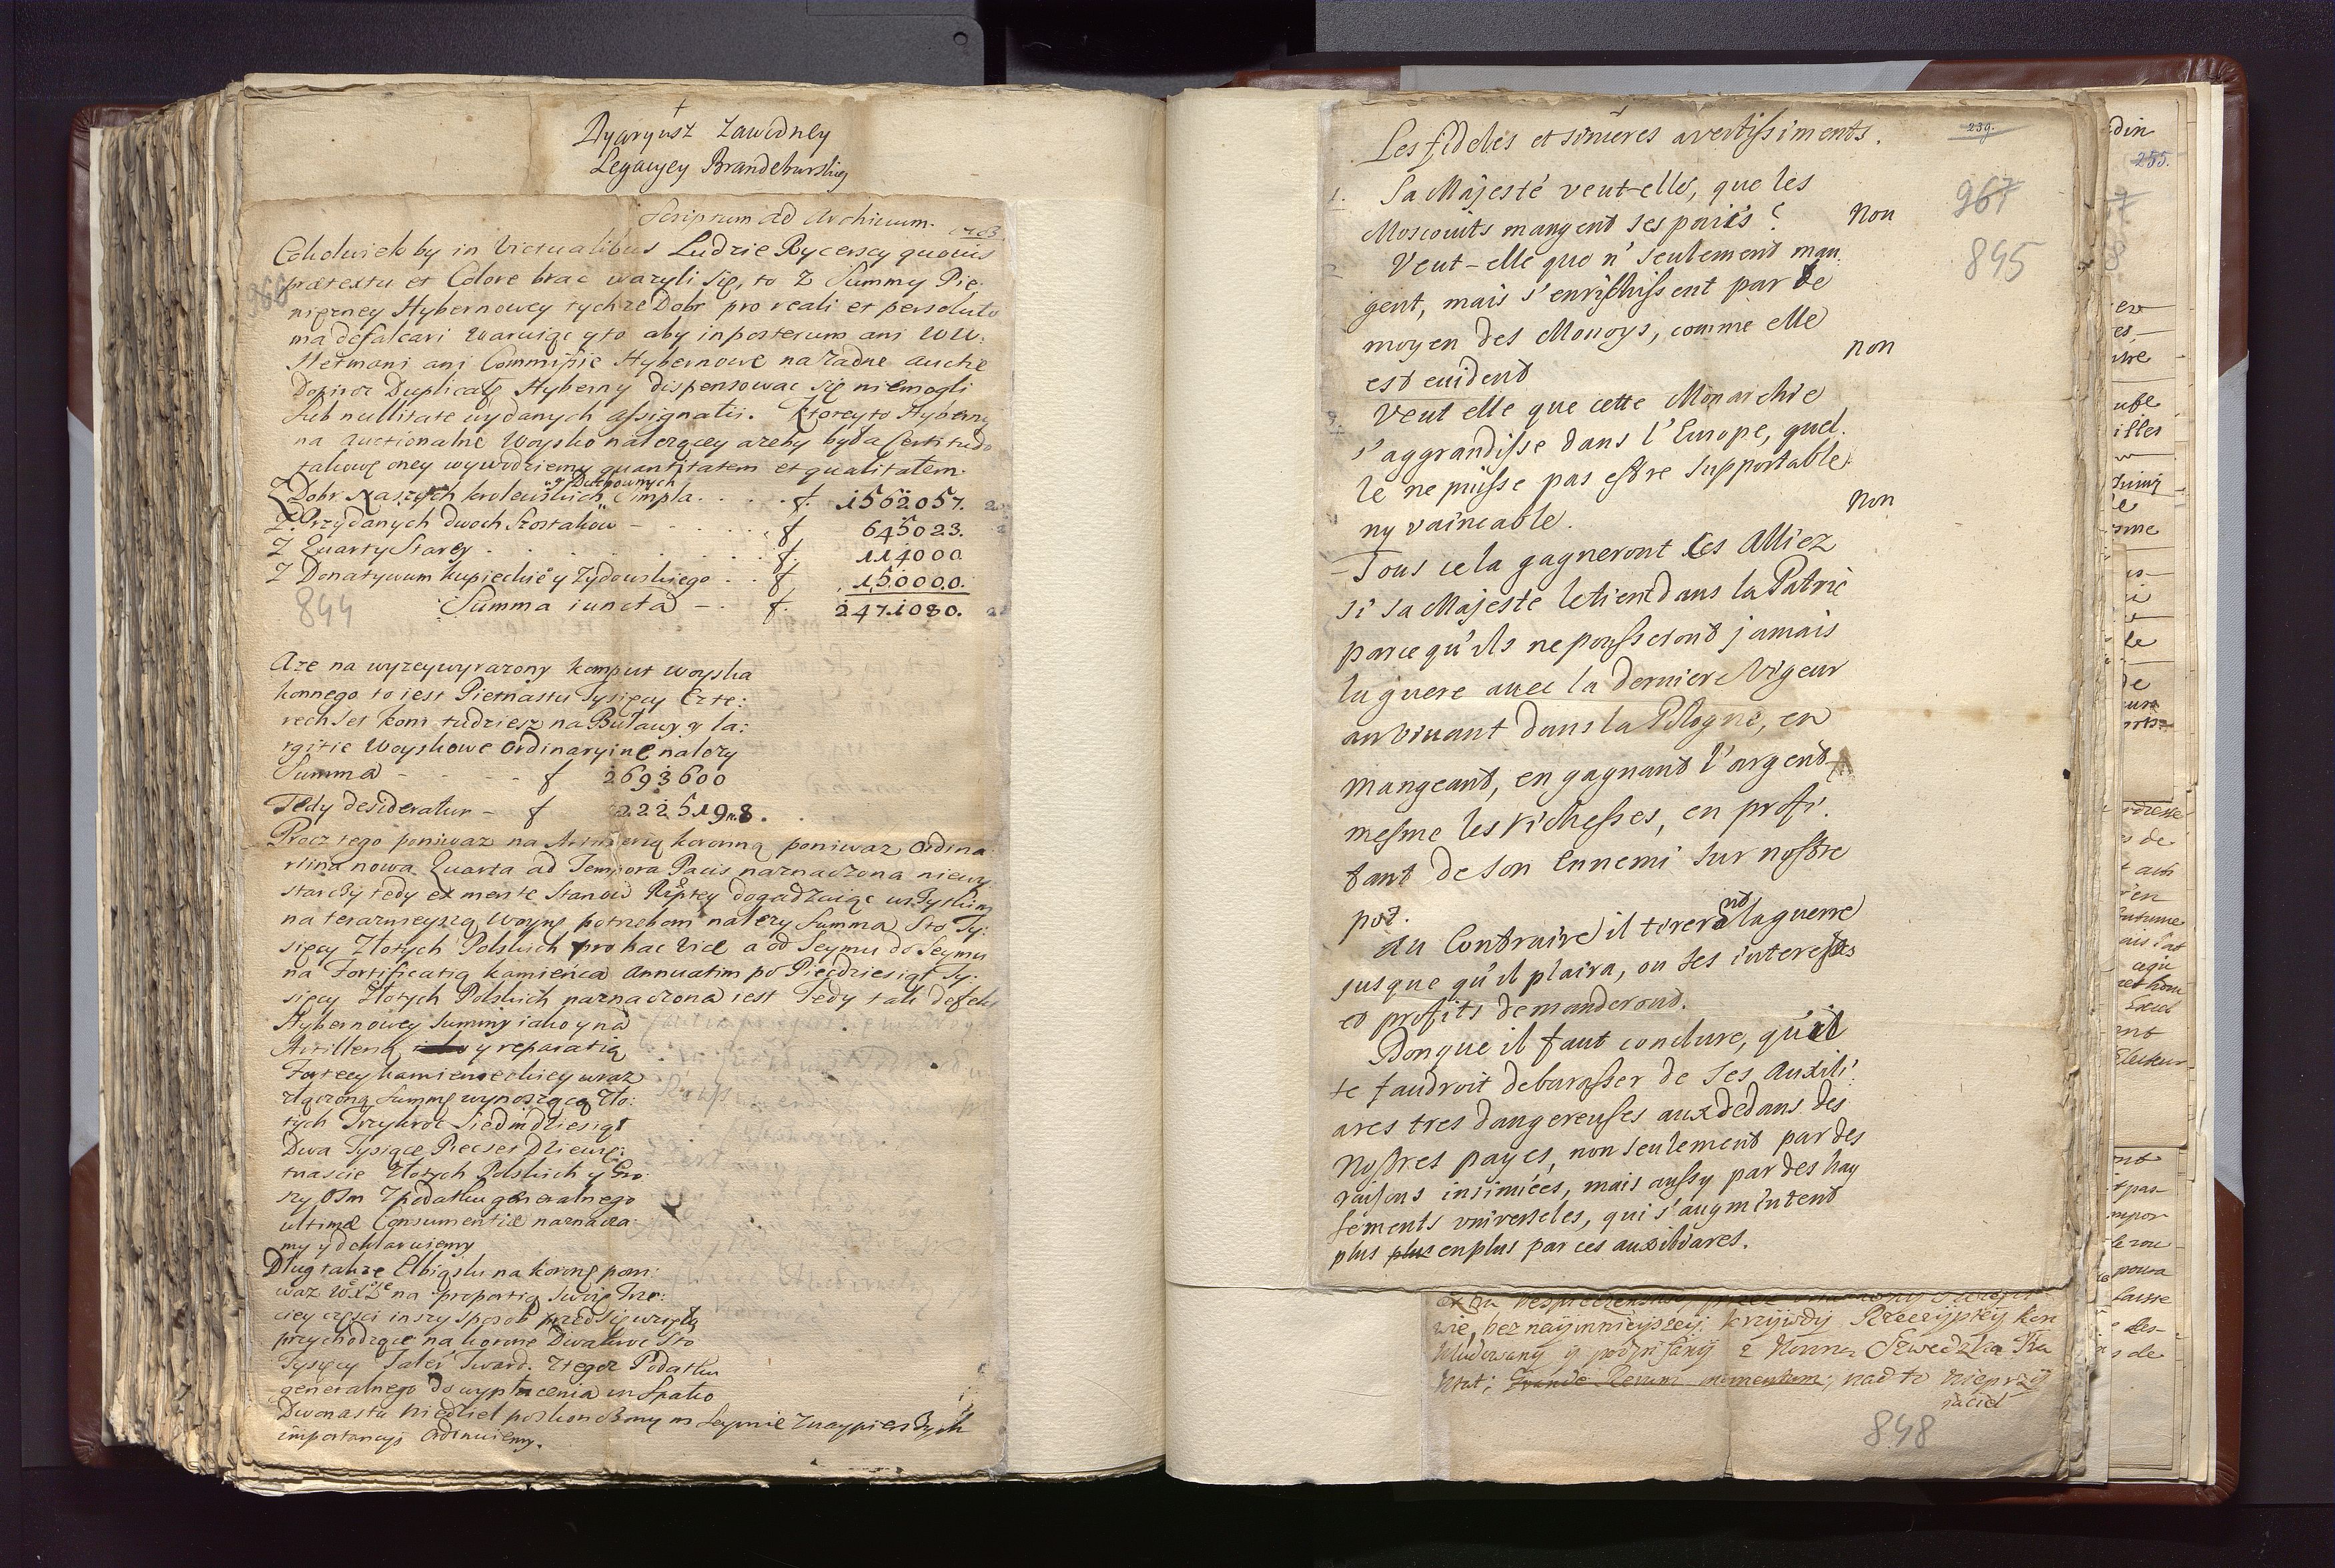 Dyaryusz Zawidney
Legacyey Brandeburskiey
Scriptum ad Archivum. 1703
Cokolwiek by in Victualibus Ludzie Rycerscy quovis
prætextu et Colore brac wazyli się, to z Summy Pie:
nięzney Hybernowey tychze Dobr pro reali et persoluto
ma defalcari Waruiąc y to aby inposterum ani WW.
Hetmani ani Commissie Hybernowe na zadne auctie
Dopiroz Duplicatę Hyberny dispensowac się niemogli
sub nullitate wydanych assignatij. Ktorey to Hyberny
na auctionalne Woysko nalezącey azeby była certitudo
takowę oney wywodziemy quantitatem et qualitatem.
Z Dobr Naszych krolewskich y Duchownych Simpla . . . . f. 1562057.
Z Przydanych dwoch Szostakow - . . . . f 645023.
Z Quarty Starey . . . . . f. 114000
Z Donatywum kupieckie y Zydowskiego . . f 150000.
844 Summa iuncta - . f. 2471080.
Aze na wyzeywyrazony komput woyska
konnego to iest Pietnastu Tysięcy Czte:
rech set koni tudziesz na Buławy y la:
rgitie Woyskowe Ordinaryine nalezy
Summa - - - - f 2693600
Tedy desideratur - f 222519.8.
Procz tego poniwaz na Armierią koronną poniwaz Ordina
riina nowa Quarta ad Tempora Pacis naznaczona niewy:
starczy tedy ex mente Stanow Rptey dogadzaiąc wszystkim
na teraznieyszą Woynę potrzebom nalezy Summa Sto Ty:
sięcy Złotych Polskich pro hac vice a od Seymu do Seymu
na Fortificatią kamieńca Annuatim po Pięcdziesiąt Ty:
sięcy Złotych Polskich naznaczona iest Tedy tak defekt
Hybernowey Summy iako y na
Artillerią y reparatią
Fortecy kamienieckiey wraz
złączoną Summę wynoszącą Zło:
tych Trzykroc Siedmdziesiąt
Dwa Tysiące Piecset Dziewię:
tnascie Złotych Polskich y Gro
szy Osm z podatku generalnego
ultimæ Consumentiæ naznacza
my y deklaruiemy
Dług takze Elbiąsku na koronę poni:
waz WXLe na proportią Swoię Trze:
ciey części inszy sposob przed się wzięła
przychodzące na koronę Dwakroc Sto
Tysięcy Taler Tward. z tegoz Podatku
generalnego do wypłacenia in Spatio
Dwonastu Niedziel poskonczony m Seymie z naypierszych
importancyi Ordinuiemy.
Les fideles et sinceres avertissiments.
239.
967
845
1. Sa Majesté veut-elle, que les
Moscouits mangent ses païs? Non
Veut-elle que n' seulement man
gent, mais s'enrichissent par le
moyen des Monoys, comme elle
est euident non
Veut elle que cette Monarchie
s'aggrandisse dans l'Europe, quel.
le ne puisse pas estre supportable
ny vaincable. Non
Tous cela gagneront les Alliez
si sa Majeste le tient dans la Patrie
parce qu'ils ne pousseront jamais
la guere avec la derniere Vigeur
an vivant dans la Pologne, en
mangeant, en gagnant l'argent
mesme les richesses, en profi:
tant de son Ennemi sur nostre
pot.
Au Contraire il tirerant la guerre
jusque qu'il plaira, ou ses interestes
et profits demanderont.
Donque il faut conclure, qu'il
se faudroit debarasser de ses Auxili:
ares tres dangereuses aux dedans des
Nostres payes, non seulement par des
raisons insimiées, mais aussy par des hay
sements universeles, qui s'augmintent
plus plus en plus par ces auxiliares.
wie, bez naymnieyszeiy krzywdy Rzeczypltey kon
kludowany y podpisany z Koroną Szwedzką Tra
ktat; Grande Rerum momentum, nad to nieprzy
iaciel
848
255.